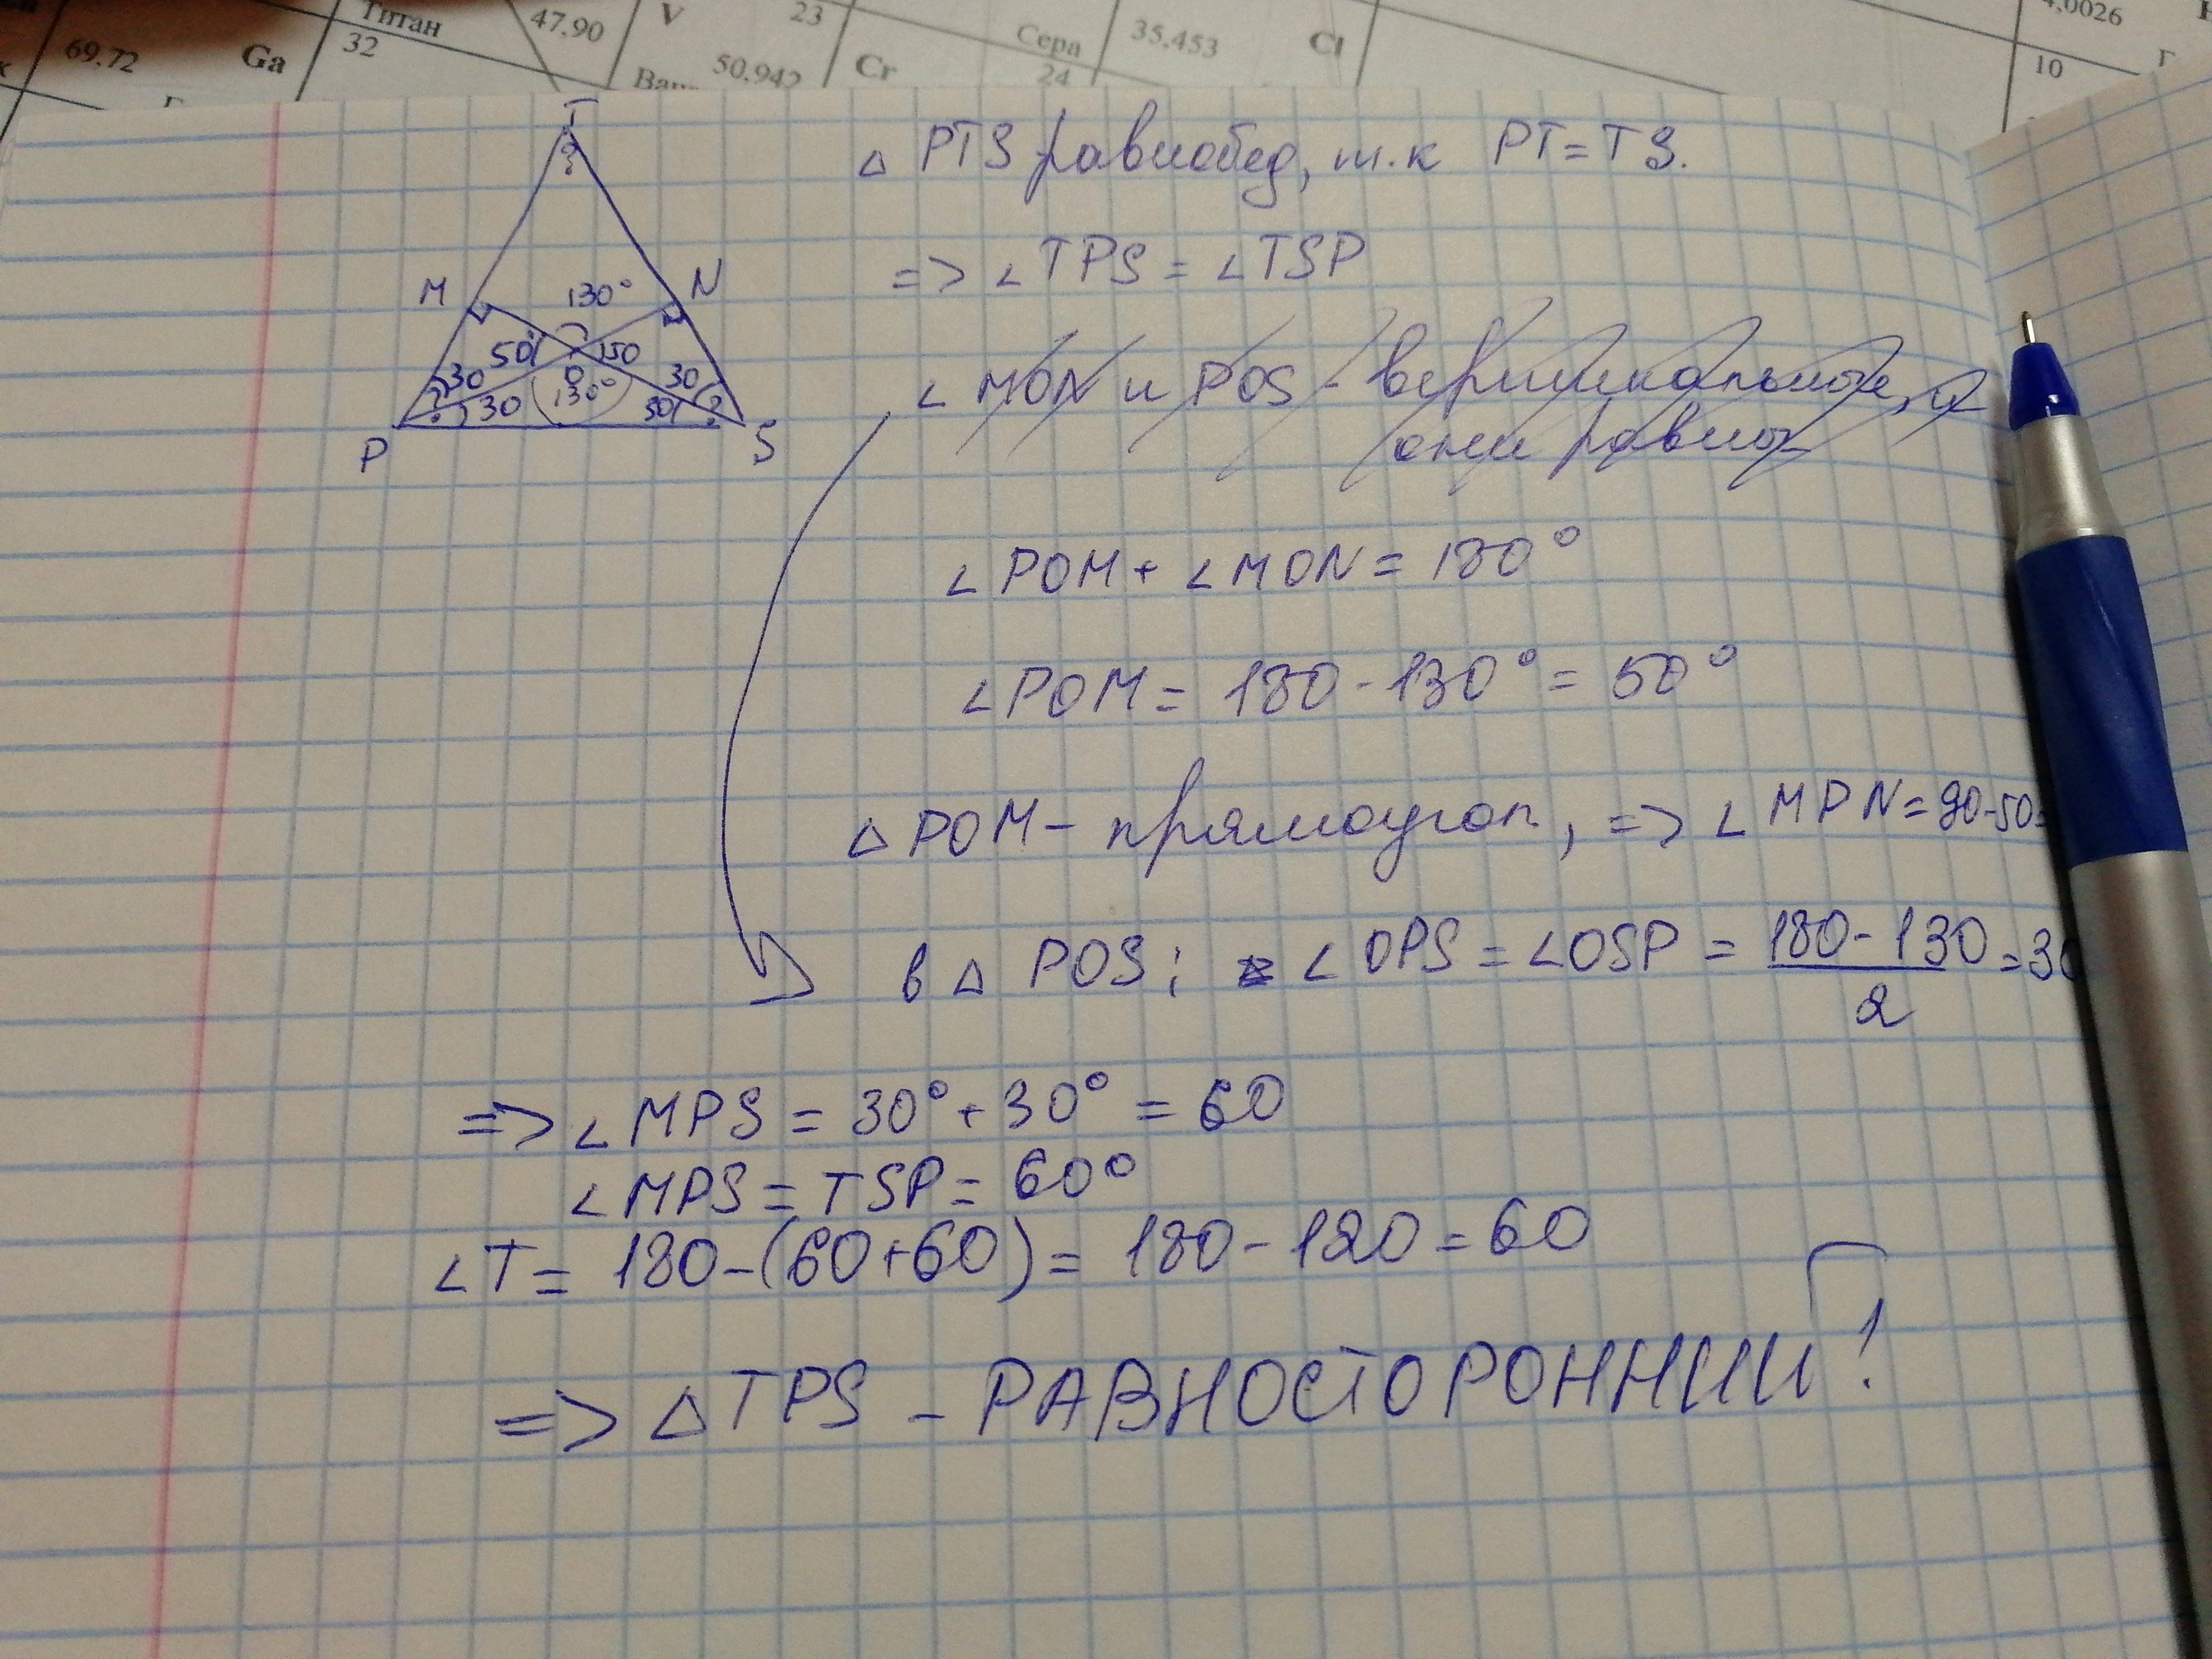 69,72
Ga
Титан
32
47,90
V
23
50,942
Cr
Сера
24
35,453
Cl
4,0026
10
T
M
130°
N
50°
150
O
30
30
30
130°
30
P
S
△ PTS равнобед, т.к PT = TS.
=> ∠TPS = ∠TSP
∠ MON и POS - вертикальные, и
они равны
∠POM + ∠MON = 180°
∠POM = 180 - 130° = 50°
△ POM - прямоугол, => ∠MPN = 90-50=
в △ POS: ∠OPS = ∠OSP = (180 - 130)/2 = 30
=> ∠MPS = 30° + 30° = 60
∠MPS = TSP = 60°
∠T = 180-(60+60) = 180 - 120 = 60
=> △TPS - РАВНОСТОРОННИЙ!